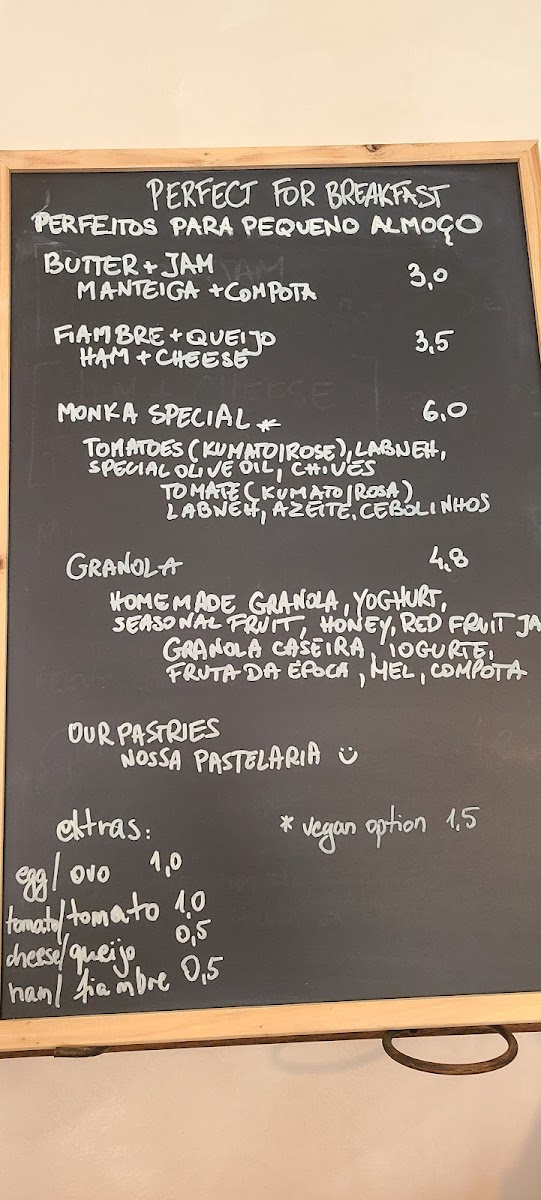 PERFECT FOR BREAKFAST
PERFEITOS PARA PEQUENO ALMOÇO
BUTTER + JAM 3,0
MANTEIGA + COMPOTA
FIAMBRE + QUEIJO 3,5
HAM + CHEESE
MONKA SPECIAL * 6,0
TOMATOES (KUMATO/ROSE), LABNEH,
SPECIAL OLIVE OIL, CHIVES
TOMATE (KUMATO/ROSA)
LABNEH, AZEITE, CEBOLINHOS
GRANOLA 4,8
HOMEMADE GRANOLA, YOGHURT,
SEASONAL FRUIT, HONEY, RED FRUIT JA
GRANOLA CASEIRA, IOGURTE,
FRUTA DA ÉPOCA, MEL, COMPOTA
OUR PASTRIES
NOSSA PASTELARIA
extras: * vegan option 1,5
egg/ ovo 1,0
tomato/tomato 1,0
cheese/queijo 0,5
ham/ fiambre 0,5